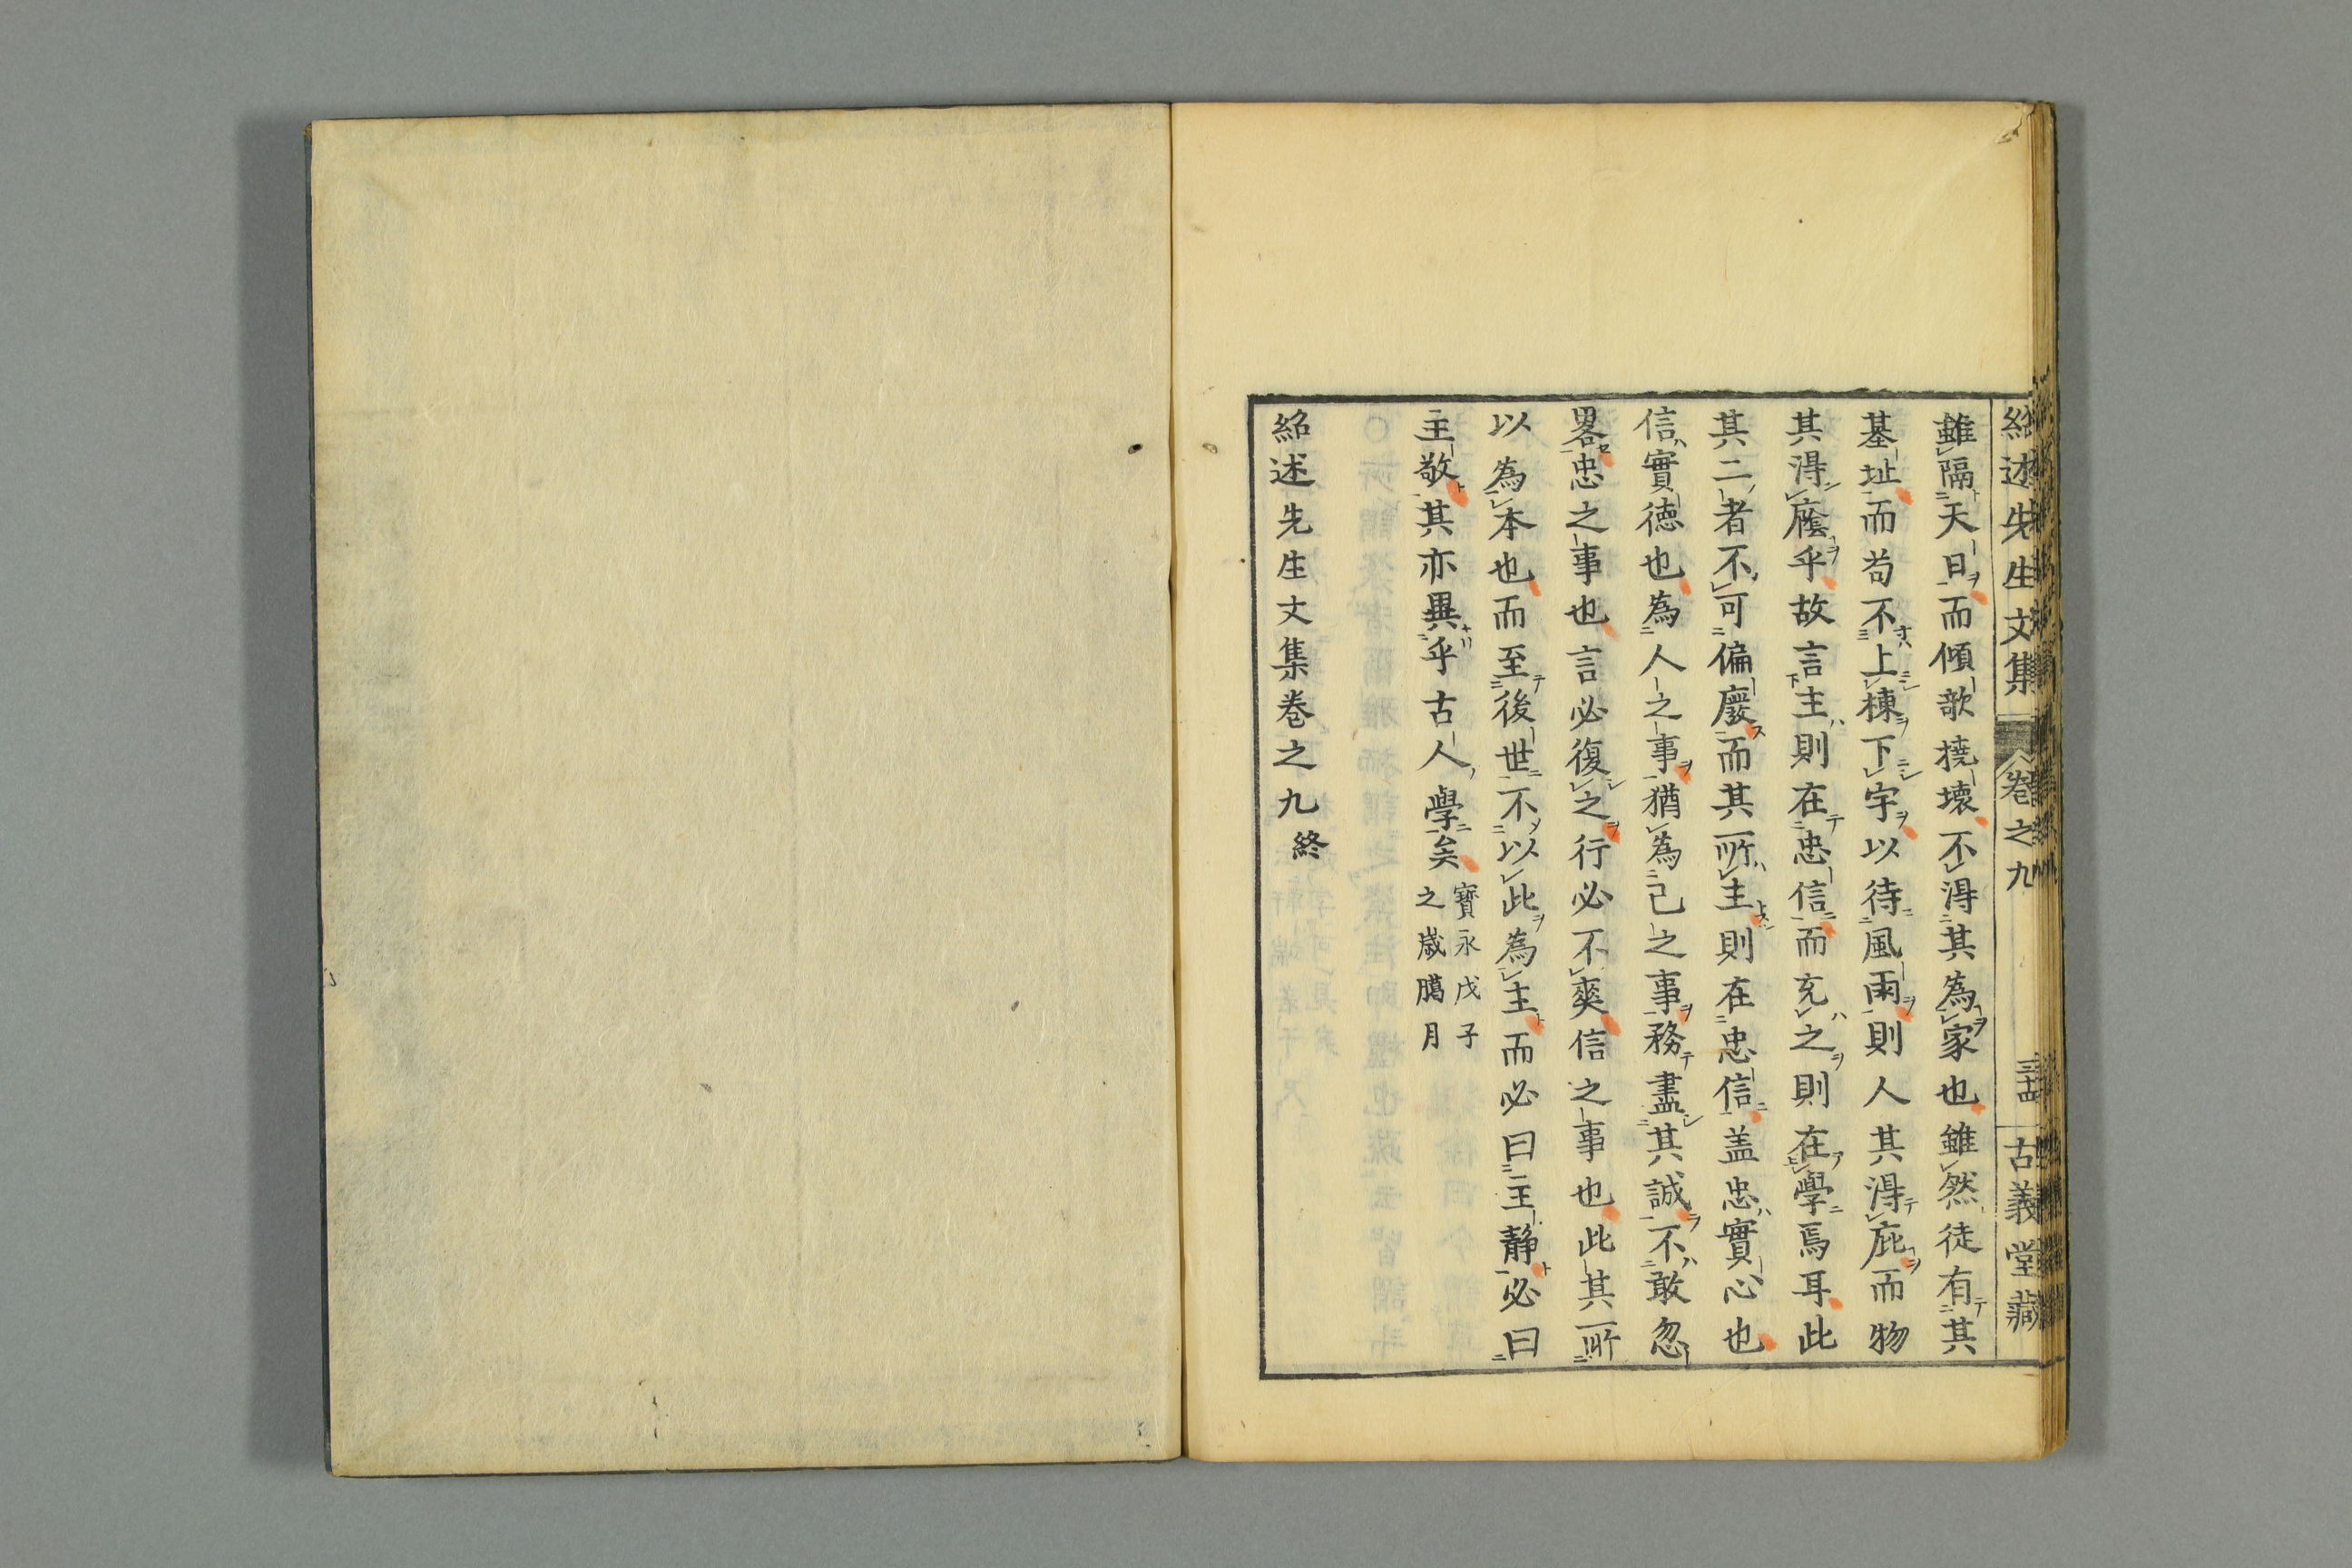 紹述先生文集 卷之九 三十四 古義堂藏
雖隔天日而傾欹撓壞不得其為家也雖然徒有其
基址而苟不上棟下宇以待風雨則人其得庇而物
其得廕乎故言主則在忠信而充之則在學焉耳此
其二者不可偏廢而其所主則在忠信盖忠實心也
信實德也為人之事猶為己之事務盡其誠不敢忽
畧忠之事也言必復之行必不爽信之事也此其所
以為本也而至後世不以此為主而必曰主靜必曰
主敬其亦異乎古人學矣
寶永戊子
之歲臈月
紹述先生文集卷之九終